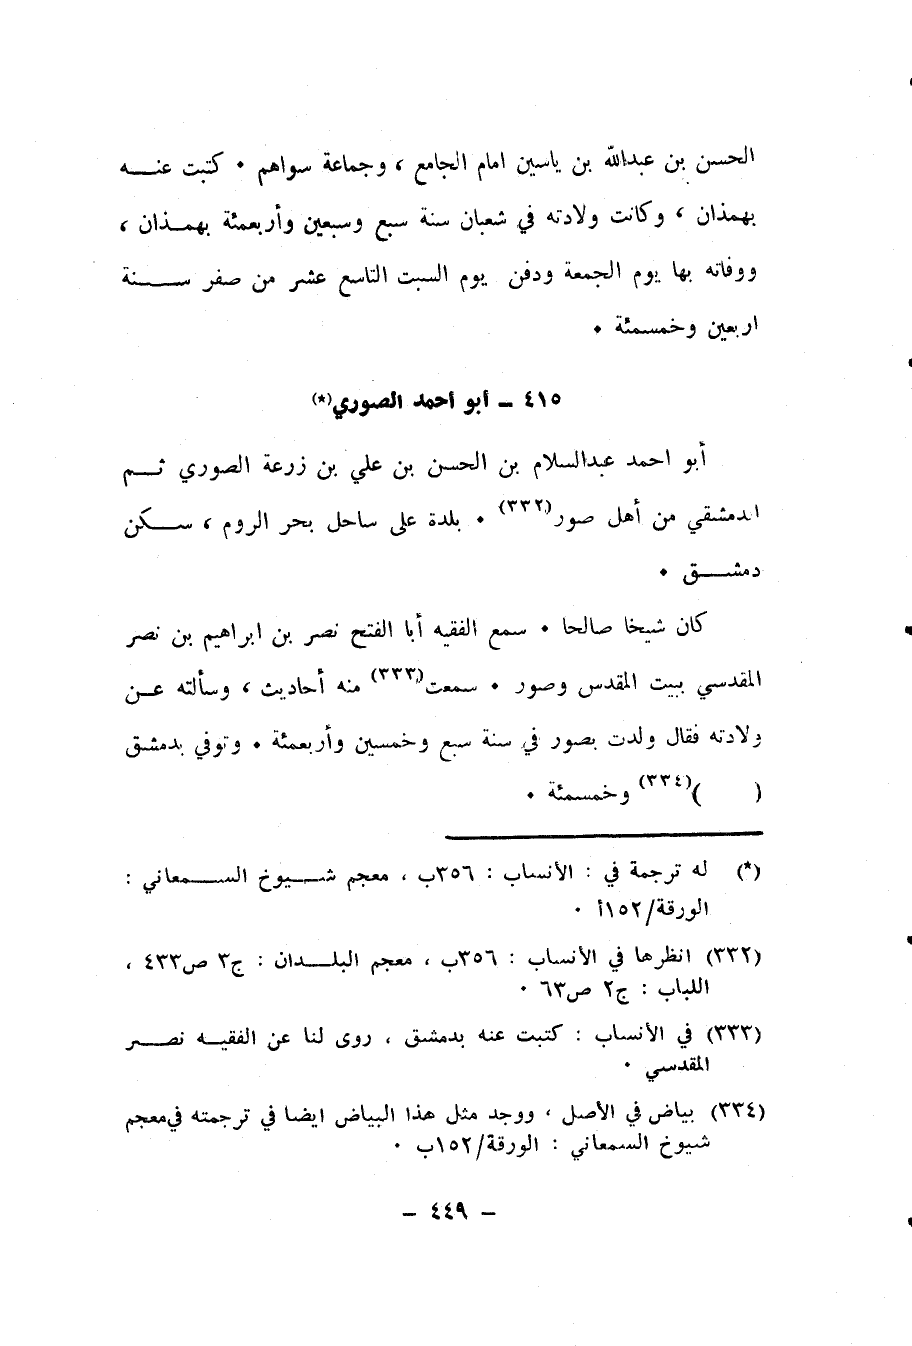 الحسن بن عبدالله بن ياسين امام الجامع ، وجماعة سواهم • كتبت عنـــه
بهمذان ، وكانت ولادته في شعبان سنة سبع وسبعين وأربعمئة بهمــذان ،
ووفاته بها يوم الجمعة ودفن يوم السبت التاسع عشر من صفر ســـــنة
اربعين وخمسمئة •
٤١٥ ــ أبو احمد الصوري(*)
أبو احمد عبدالسلام بن الحسن بن علي بن زرعة الصوري ثـــم
الدمشقي من أهل صور(٣٣٢) • بلدة على ساحل بحر الروم ، ســـكن
دمشـــــق •
كان شيخا صالحا • سمع الفقيه أبا الفتح نصر بن ابراهيم بن نصر
المقدسي ببيت المقدس وصور • سمعت(٣٣٣) منه أحاديث ، وسألته عـــن
ولادته فقال ولدت بصور في سنة سبع وخمسين وأربعمئة • وتوفي بدمشق
(      )(٣٣٤) وخمسمئة •
(*) له ترجمة في : الأنساب : ٣٥٦ب ، معجم شـــيوخ الســـمعاني :
الورقة/١٥٢أ •
(٣٣٢) انظرها في الأنساب : ٣٥٦ب ، معجم البلـــدان : ج٣ ص٤٣٣ ،
اللباب : ج٢ ص٦٣ •
(٣٣٣) في الأنساب : كتبت عنه بدمشق ، روى لنا عن الفقيـــه نصـــر
المقدسي •
(٣٣٤) بياض في الأصل ، ووجد مثل هذا البياض ايضا في ترجمته في معجم
شيوخ السمعاني : الورقة/١٥٢ب •
ــ ٤٤٩ ــ